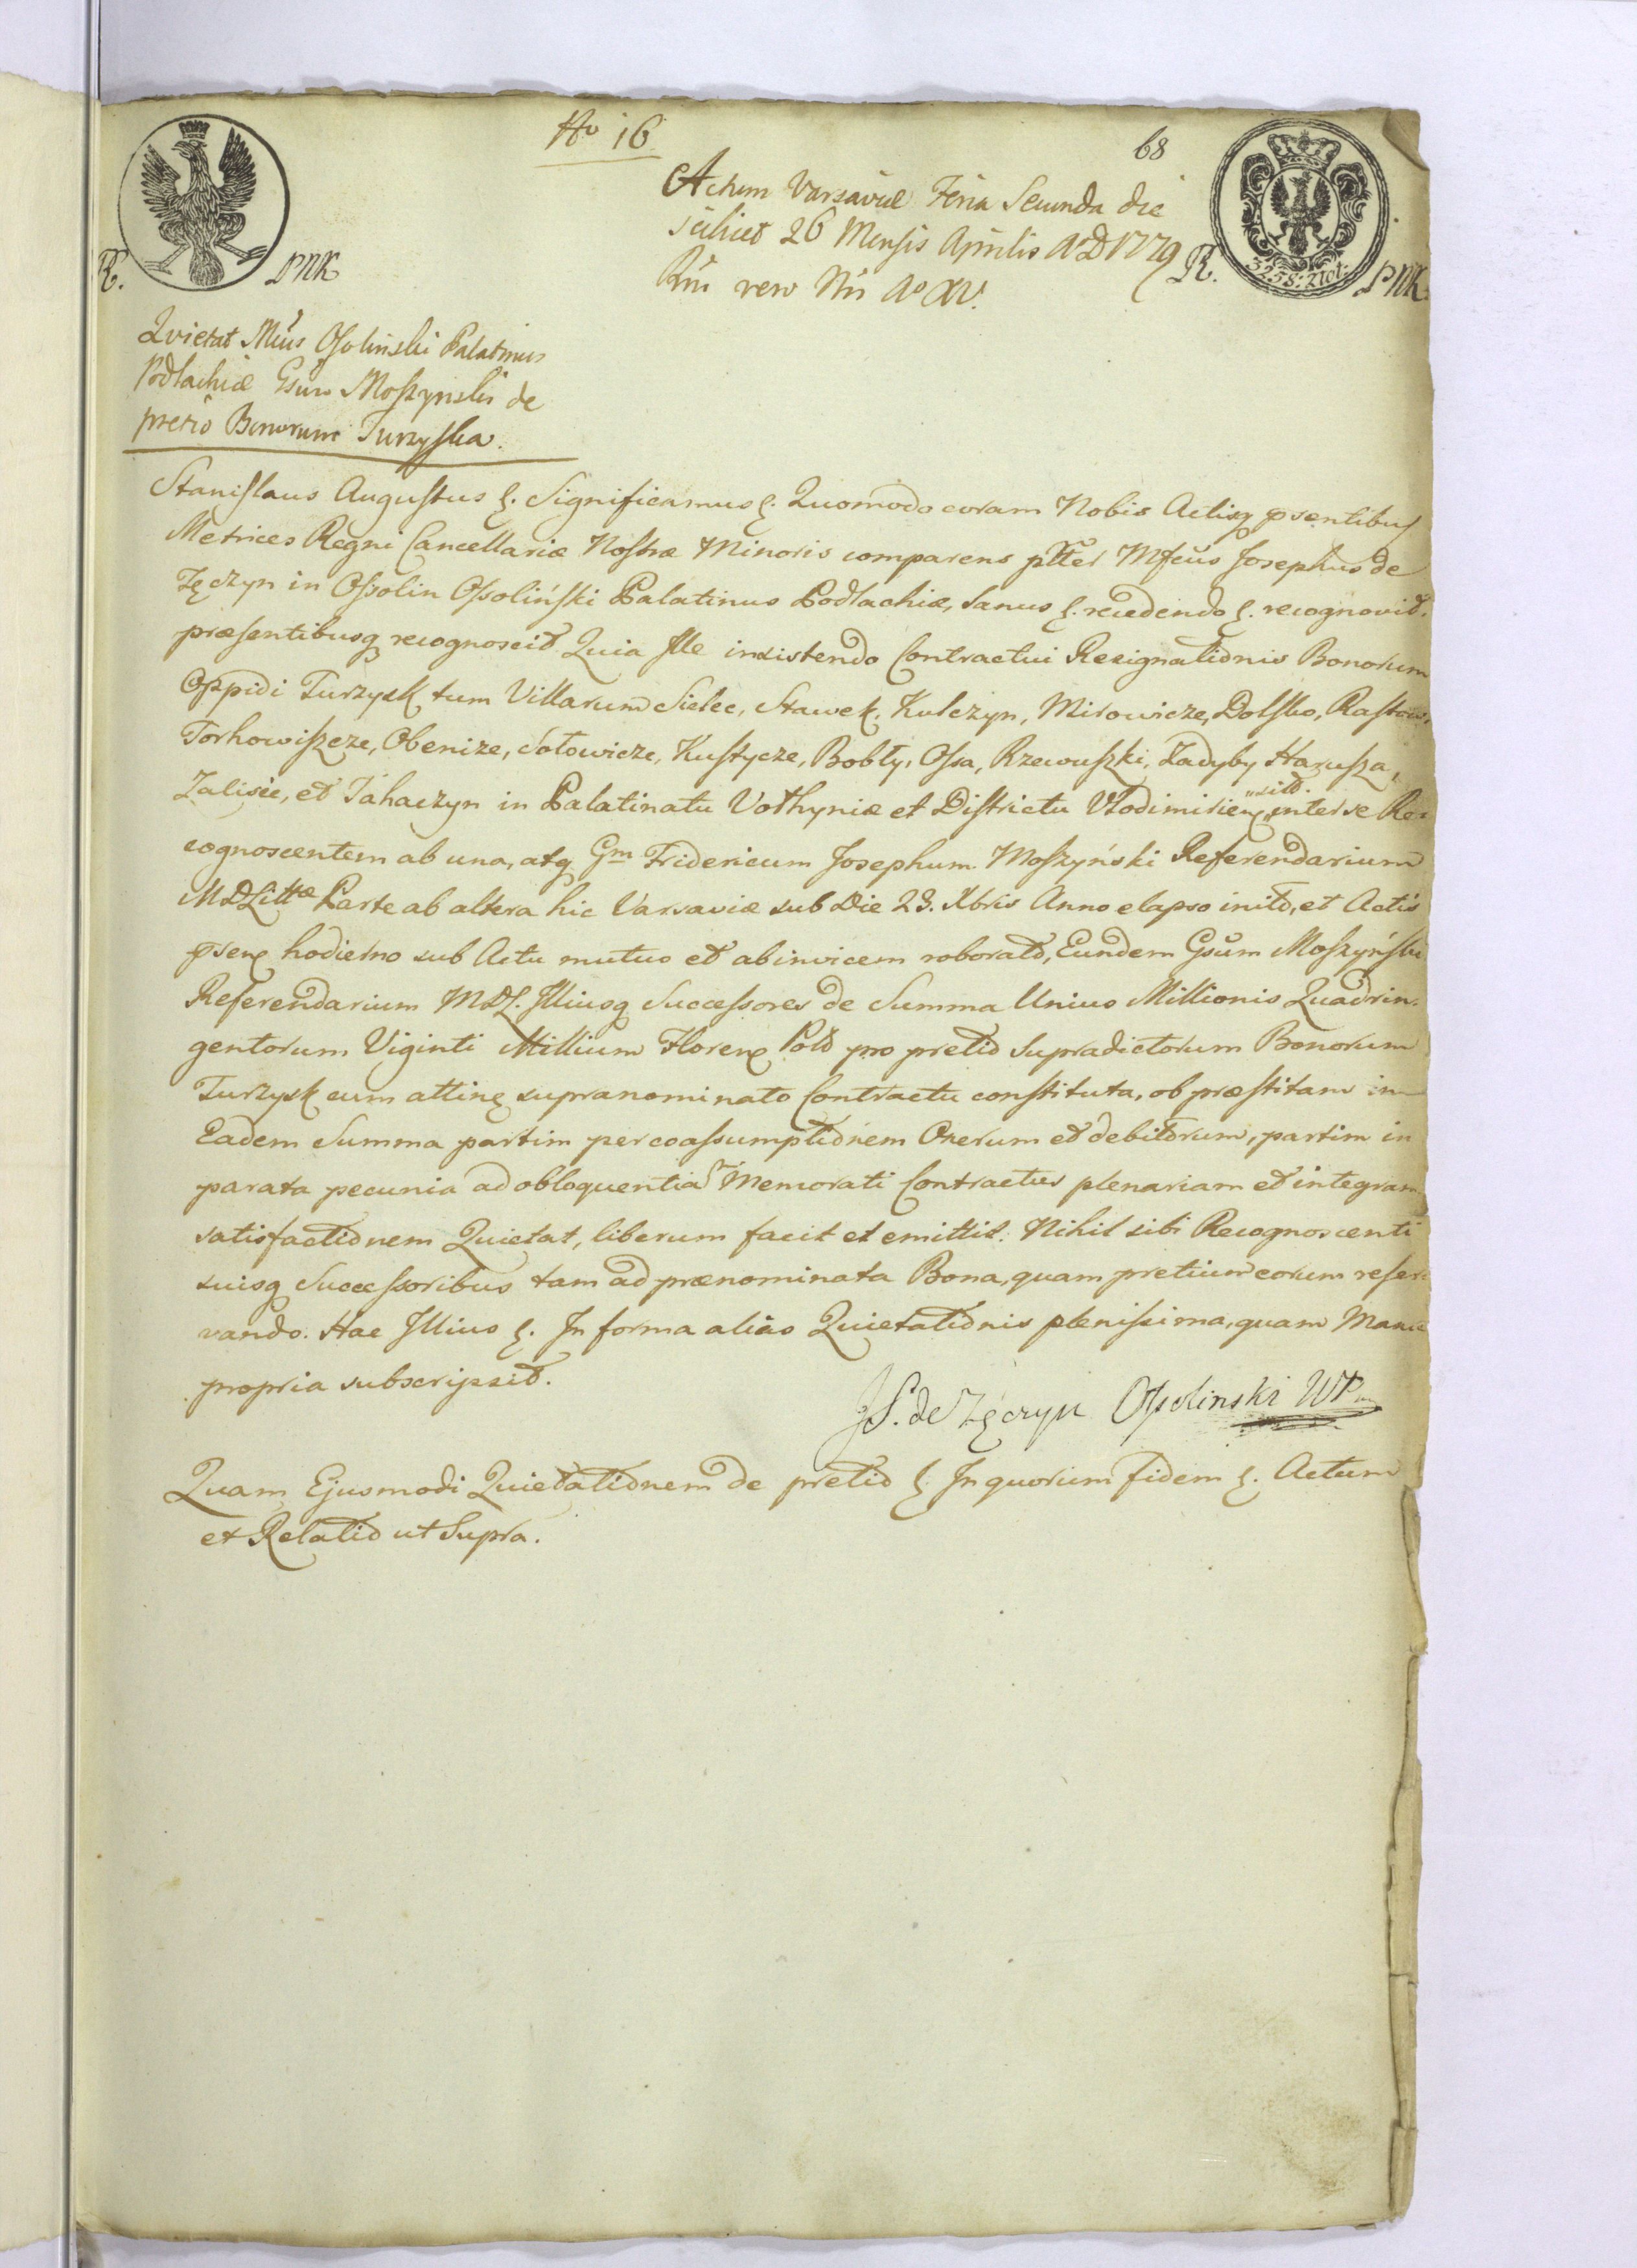 No 16
68
Actum Varsaviæ Feria Secunda die
scilicet 26 Mensis Aprilis A D 1779
Rni vero Nri Ao XV.
R. PNK
R. PNK
325 S: 2 Zlot:
Quietat Mcus Ossolinski Palatinus
Podlachiæ Gsum Moszynski de
pretio Bonorum Turzyska.
Stanislaus Augustus &. Significamus &. Quomodo coram Nobis Actisq præsentibus
Metrices Regni Cancellariæ Nostræ Minoris comparens plter Mfcus Josephus de
Tęczyn in Ossolin Ossoliński Palatinus Podlachiæ, Sanus &. recedendo &. recognovit.
præsentibusq recognoscit Quia Ille insistendo Contractui Resignationis Bonorum
Oppidi Turzysk tum Villarum Sielec, Stawek, Kulczyn, Mirowicze, Dolsko, Rastow,
Torhowiszcze, Obenize, Sołowicze, Kustycze, Bobły, Ossa, Rzewuszki, Zadyby Harusza,
Zalisie, et Tahaczyn in Palatinatu Volhyniæ et Districtu Vlodimirien sitt. inter se Re=
cognoscentem ab una, atq Gm Fridericum Josephum Moszyński Referendarium
MDLittæ Parte ab altera hic Varsaviæ sub Die 23. Xbris Anno elapso inito, et Actis
psen hodierno sub Actu mutuo et abinvicem roborato, Eundem Gsum Moszyński
Referendarium MDL. Illiusq Successores de Summa Unius Millionis Quadrin.
gentorum Viginti Millium Floren Pol pro pretio supradictorum Bonorum
Turzysk cum attin supranominato Contractu constituta, ob præstitam in
Eadem Summa partim per coassumptionem Onerum et debitorum, partim in
parata pecunia ad obloquentia Memorati Contractus plenariam et integram
satisfactionem Quietat, liberum facit et emittit. Nihil sibi Recognoscenti
suisq Successoribus tam ad prænominata Bona, quam pretium eorum reser
vando. Hac Illius &. In forma alias Quietationis plenissima, quam Manu
propria subscripsit.
JS. de Tęczyn Ossolinski WP
Quam Ejusmodi Quietationem de pretio &. In quorum fidem &. Actum
et Relatio ut Supra.